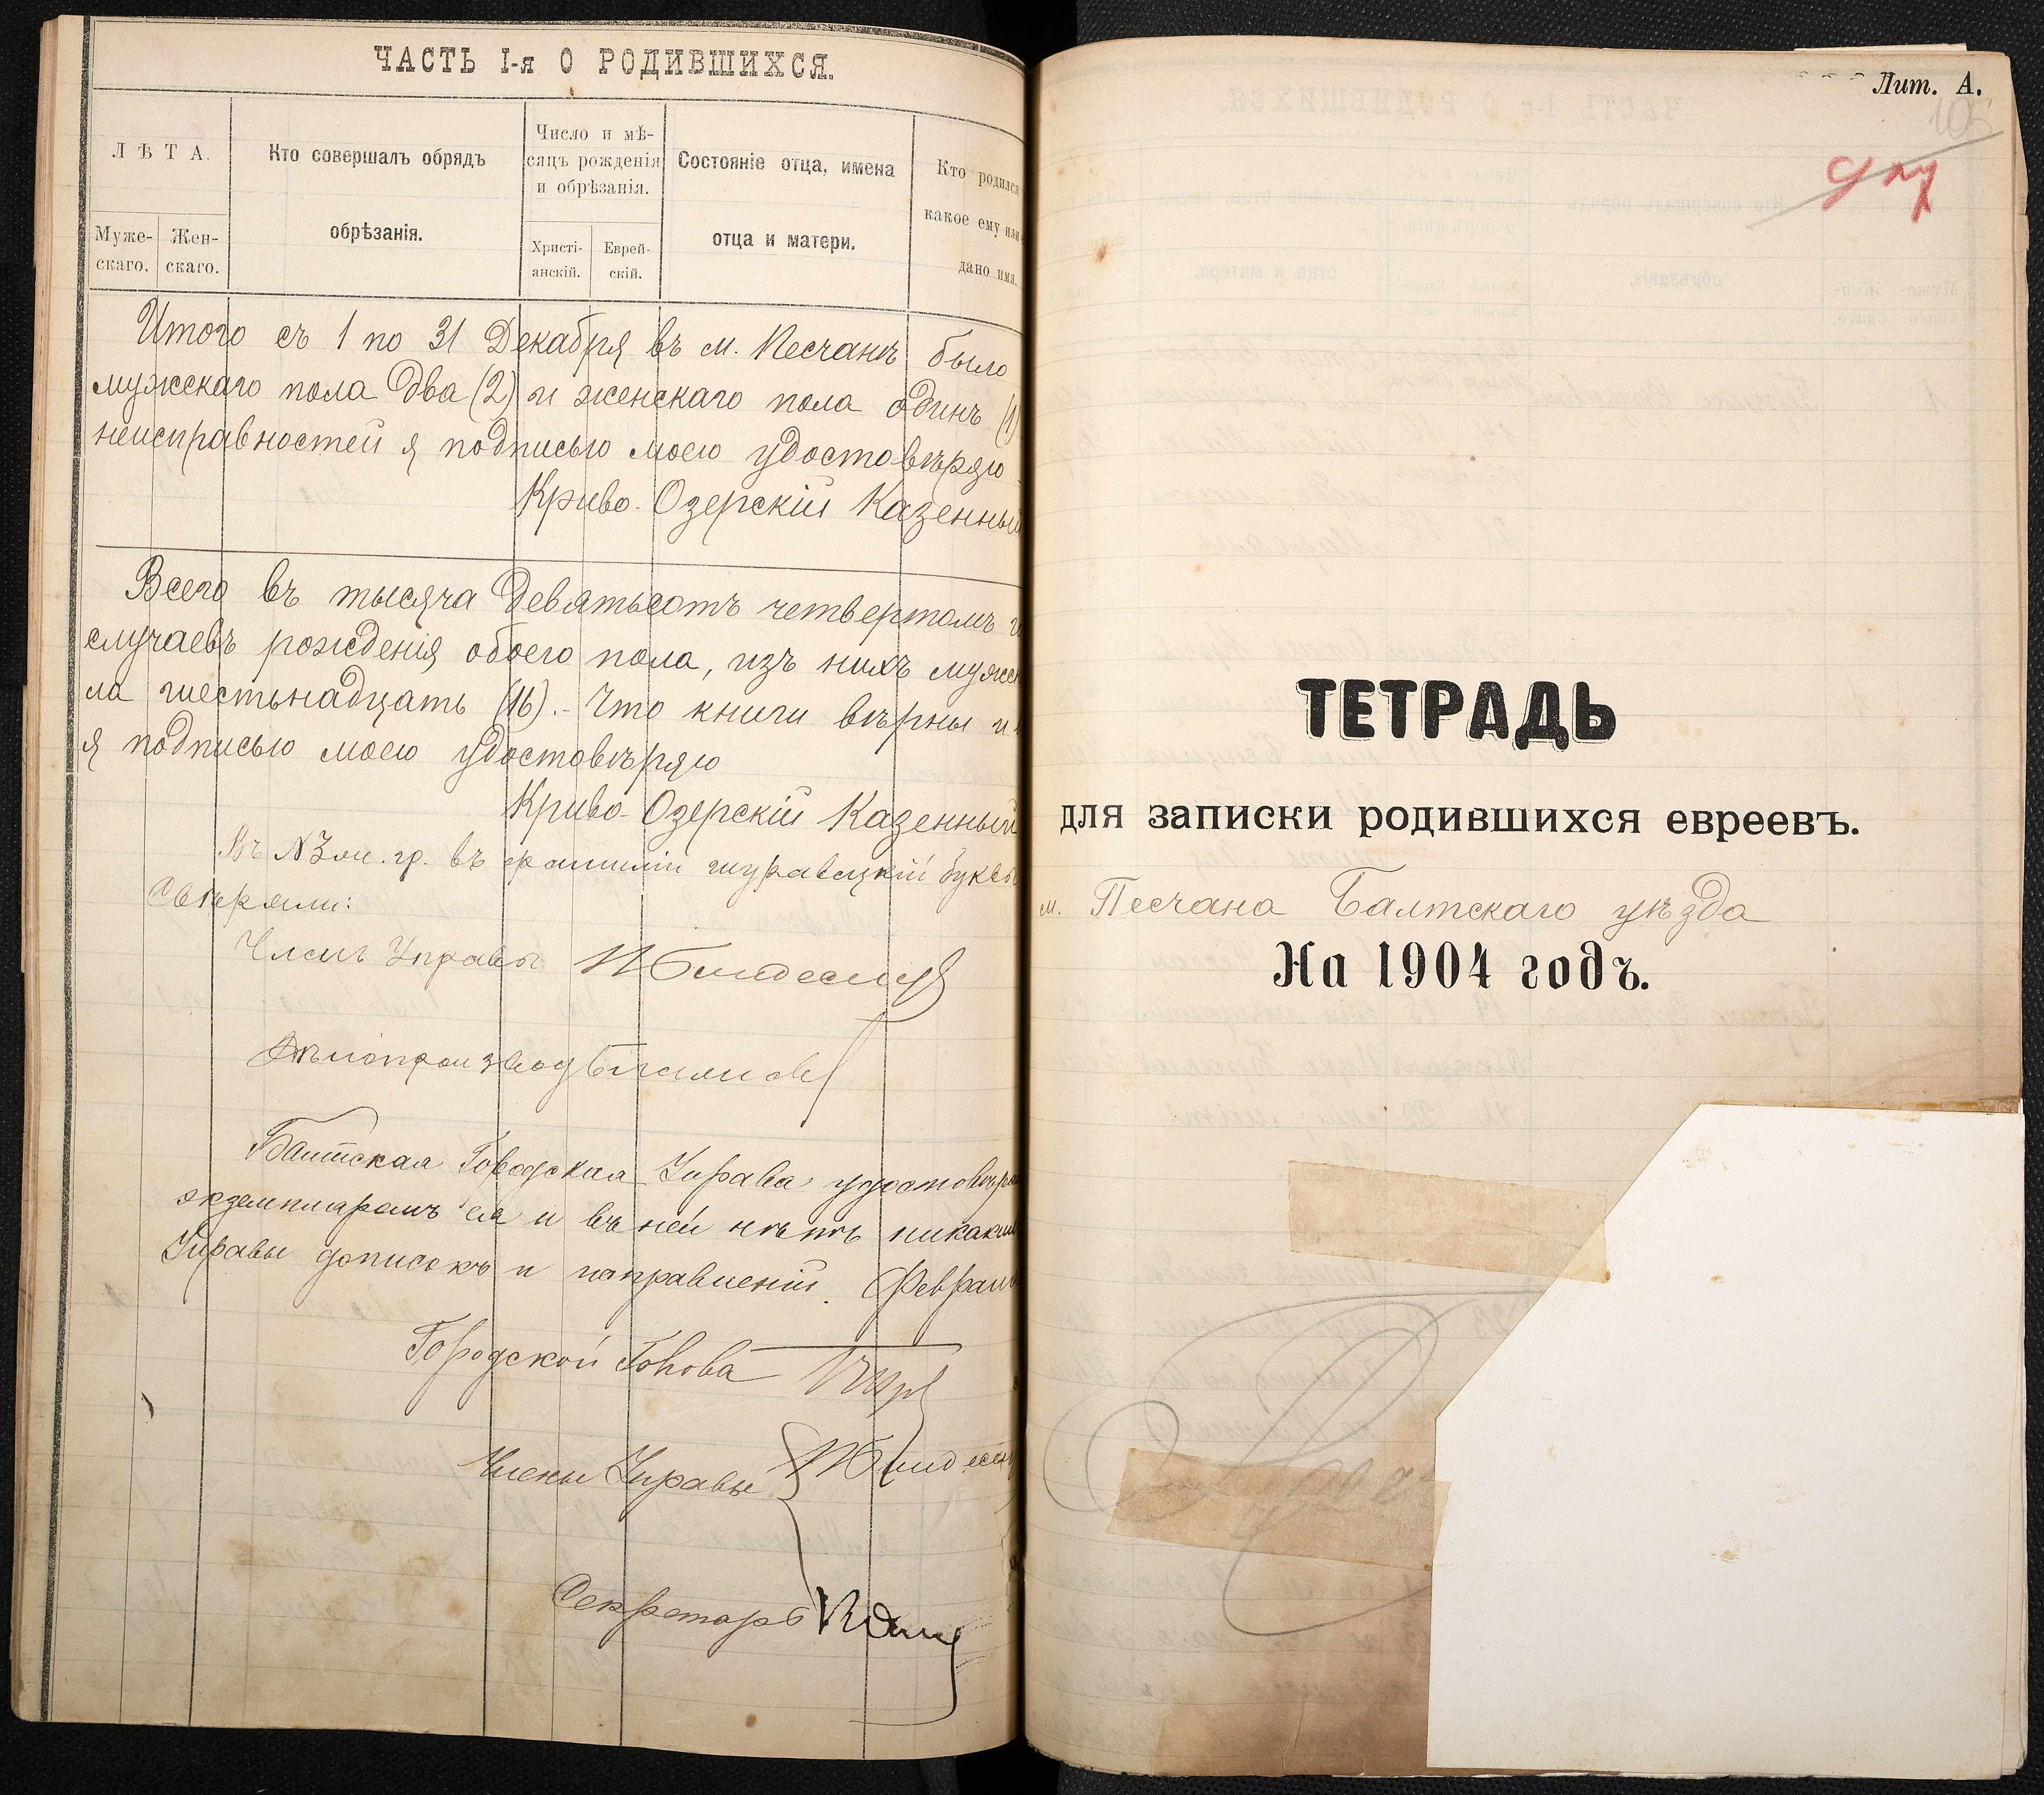 ЧАСТЬ I-я О РОДИВШИХСЯ.
ЛѢТА.
Муже-
скаго.
Жен-
скаго.
Кто совершалъ обрядъ
обрѣзанія.
Число и мѣ-
сяцъ рожденія
и обрѣзанія.
Христі-
анскій.
Еврей-
скій.
Состояніе отца, имена
отца и матери.
Кто родился
какое ему или
дано имя.
Итого съ 1 по 31 Декабря въ м. Песчанѣ было
мужескаго пола два (2) и женскаго пола одинъ (1)
неисправностей я подписью моею удостовѣряю
Криво-Озерскій Казенный
Всего въ тысяча девятьсотъ четвертомъ г
случаевъ рожденія обоего пола, изъ нихъ мужск
ла шестьнадцать (16).- Что книги вѣрны и
я подписью моею удостовѣряю
Криво-Озерскій Казенный
Въ №3 м. гр. въ фамиліи буквы
Свѣряли:
Членъ Управы
Балтская Городская Управа удостовѣря
экземпляромъ ея и въ ней нѣтъ никаких
Управы дописокъ и поправленій. Феврал
Городской Голова
Члены Управы
Секретарь
Лит. А.
ТЕТРАДЬ
для записки родившихся евреевъ.
м. Песчана Балтскаго уѣзда
На 1904 годъ.